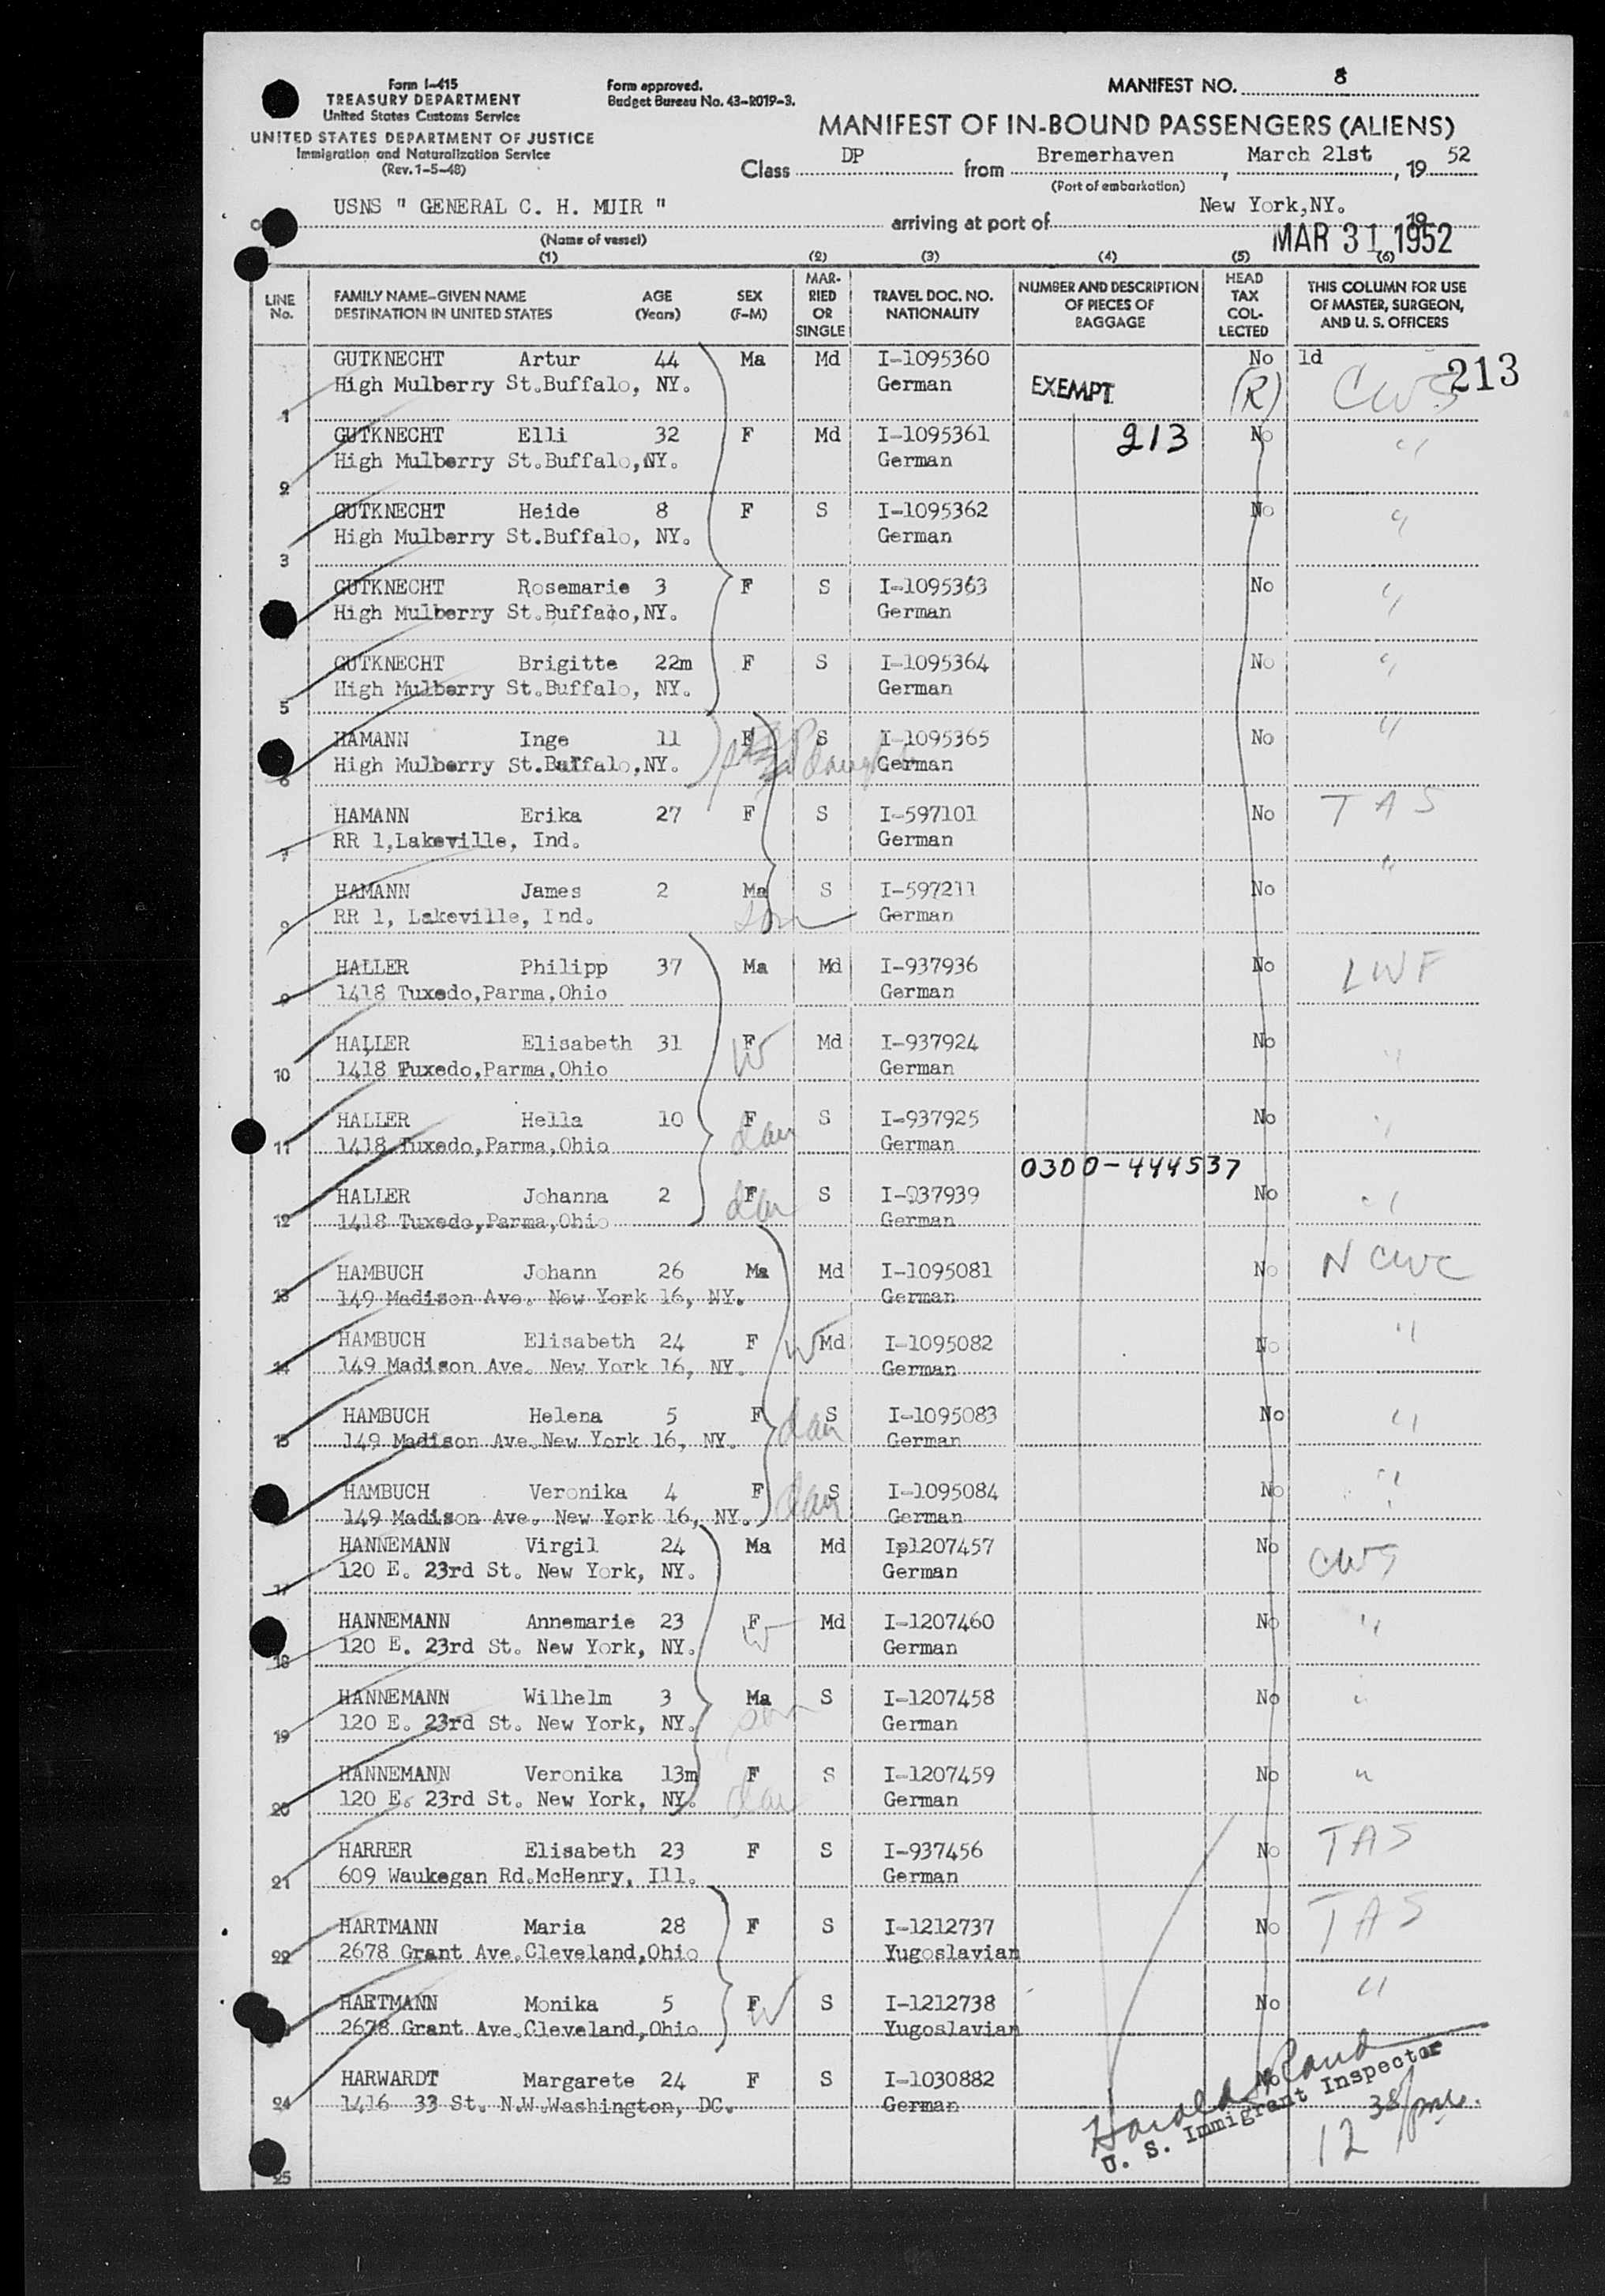 Form I-415
TREASURY DEPARTMENT
United States Customs Service
UNITED STATES DEPARTMENT OF JUSTICE
Immigration and Naturalization Service
(Rev. 1-5-48)
Form approved.
Budget Bureau No. 43-R019-3.
MANIFEST NO. 8
MANIFEST OF IN-BOUND PASSENGERS (ALIENS)
Class DP from Bremerhaven, March 21st, 19 52
(Port of embarkation)
USNS " GENERAL C. H. MUIR " arriving at port of New York,NY. 19
(Name of vessel)
MAR 31 1952
(1) (2) (3) (4) (5) (6)
LINE No. FAMILY NAME-GIVEN NAME DESTINATION IN UNITED STATES AGE (Years) SEX (F-M) MAR-RIED OR SINGLE TRAVEL DOC. NO. NATIONALITY NUMBER AND DESCRIPTION OF PIECES OF BAGGAGE HEAD TAX COL-LECTED THIS COLUMN FOR USE OF MASTER, SURGEON, AND U. S. OFFICERS
GUTKNECHT Artur 44 Ma Md I-1095360 No ld 213
High Mulberry St.Buffalo, NY. German EXEMPT (R) CWS
1
GUTKNECHT Elli 32 F Md I-1095361 213 No "
High Mulberry St.Buffalo,NY. German
2
GUTKNECHT Heide 8 F S I-1095362 No "
High Mulberry St.Buffalo, NY. German
3
GUTKNECHT Rosemarie 3 F S I-1095363 No "
High Mulberry St.Buffalo,NY. German
GUTKNECHT Brigitte 22m F S I-1095364 No "
High Mulberry St.Buffalo, NY. German
5
HAMANN Inge 11 F S I-1095365 No "
High Mulberry St.Buffalo,NY. German
6
HAMANN Erika 27 F S I-597101 No TAS
RR 1,Lakeville, Ind. German
7
HAMANN James 2 Ma S I-597211 No "
RR 1, Lakeville, Ind. son German
8
HALLER Philipp 37 Ma Md I-937936 No LWF
9 1418 Tuxedo,Parma,Ohio German
HALLER Elisabeth 31 F W Md I-937924 No "
10 1418 Tuxedo,Parma,Ohio German
HALLER Hella 10 F dau S I-937925 No "
11 1418 Tuxedo,Parma,Ohio German
0300-444537
HALLER Johanna 2 F dau S I-937939 No "
12 1418 Tuxedo,Parma,Ohio German
HAMBUCH Johann 26 Ma Md I-1095081 No NCWC
13 149 Madison Ave. New York 16, NY. German
HAMBUCH Elisabeth 24 F W Md I-1095082 No "
14 149 Madison Ave. New York 16, NY. German
HAMBUCH Helena 5 F dau S I-1095083 No "
15 149 Madison Ave.New York 16, NY. German
HAMBUCH Veronika 4 F dau S I-1095084 No "
149 Madison Ave. New York 16, NY. German
HANNEMANN Virgil 24 Ma Md Ip1207457 No CWS
120 E. 23rd St. New York, NY. German
17
HANNEMANN Annemarie 23 F W Md I-1207460 No "
120 E. 23rd St. New York, NY. German
18
HANNEMANN Wilhelm 3 Ma son S I-1207458 No "
120 E. 23rd St. New York, NY. German
19
HANNEMANN Veronika 13m F dau S I-1207459 No "
20 120 E. 23rd St. New York, NY. German
HARRER Elisabeth 23 F S I-937456 No TAS
21 609 Waukegan Rd.McHenry, Ill. German
HARTMANN Maria 28 F S I-1212737 No TAS
22 2678 Grant Ave.Cleveland,Ohio Yugoslavian
HARTMANN Monika 5 F W S I-1212738 No "
2678 Grant Ave.Cleveland,Ohio Yugoslavian
HARWARDT Margarete 24 F S I-1030882 No
24 1416 33 St. N.W.Washington, DC. German
U. S. Immigrant Inspector
12 38/pm.
25